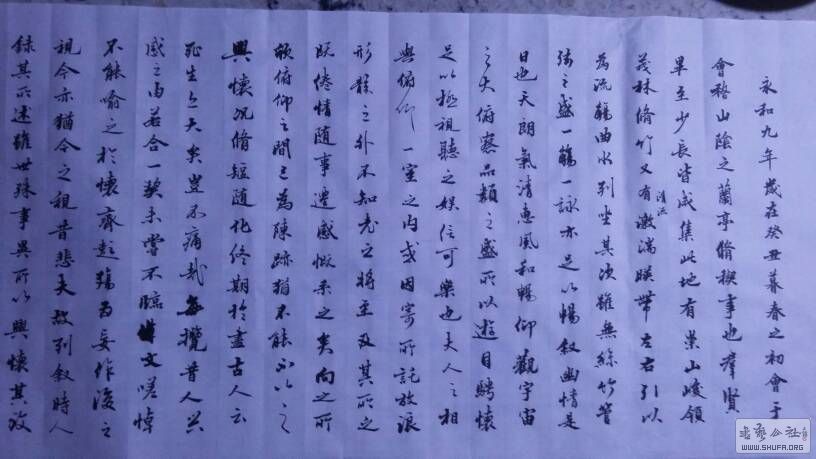 永和九年歲在癸丑暮春之初會于
會稽山陰之蘭亭脩禊事也羣賢
畢至少長皆咸集此地有崇山峻領
茂林脩竹又有清流激湍暎帶左右引以
為流觴曲水列坐其次雖無絲竹管
絃之盛一觴一詠亦足以暢敘幽情是
日也天朗氣清惠風和暢仰觀宇宙
之大俯察品類之盛所以遊目騁懷
足以極視聽之娛信可樂也夫人之相
與俯仰一室之內或因寄所託放浪
形骸之外不知老之將至及其所之
既倦情隨事遷感慨系之矣向之所
欣俯仰之間已為陳跡猶不能不以之
興懷況脩短隨化終期於盡古人云
死生亦大矣豈不痛哉每攬昔人興
感之由若合一契未嘗不臨文嗟悼
不能喻之於懷齊彭殤為妄作後之
視今亦猶今之視昔悲夫故列敘時人
錄其所述雖世殊事異所以興懷其致
書藝公社
WWW.SHUFA.ORG